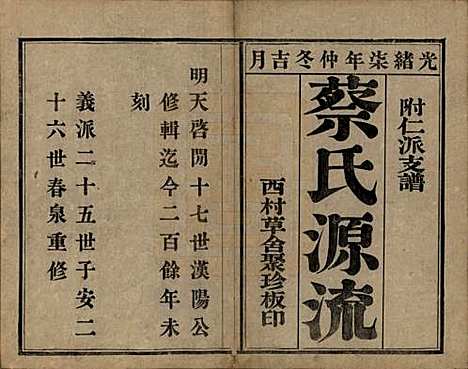 光緒柒年仲冬吉月
附仁派支譜
蔡氏源流
西村草舍聚珍板印
明天啓間十七世漢陽公
修輯迄今二百餘年未
刻
義派二十五世子安二
十六世春泉重修